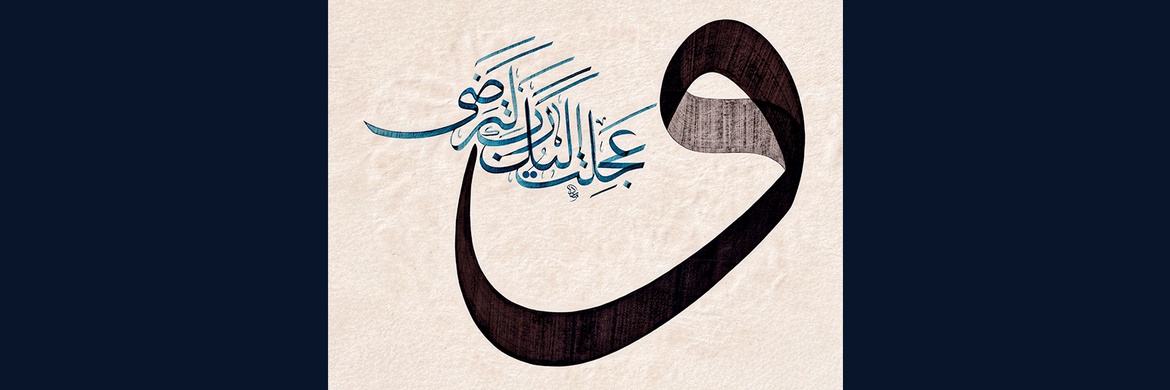 و عجلت إليك رب لترضى